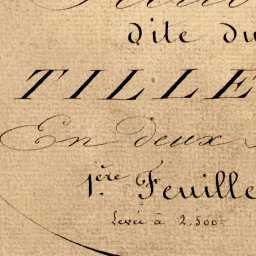 dite du
TILLE
En deux
1.ère Feuille
Levée à 2.500